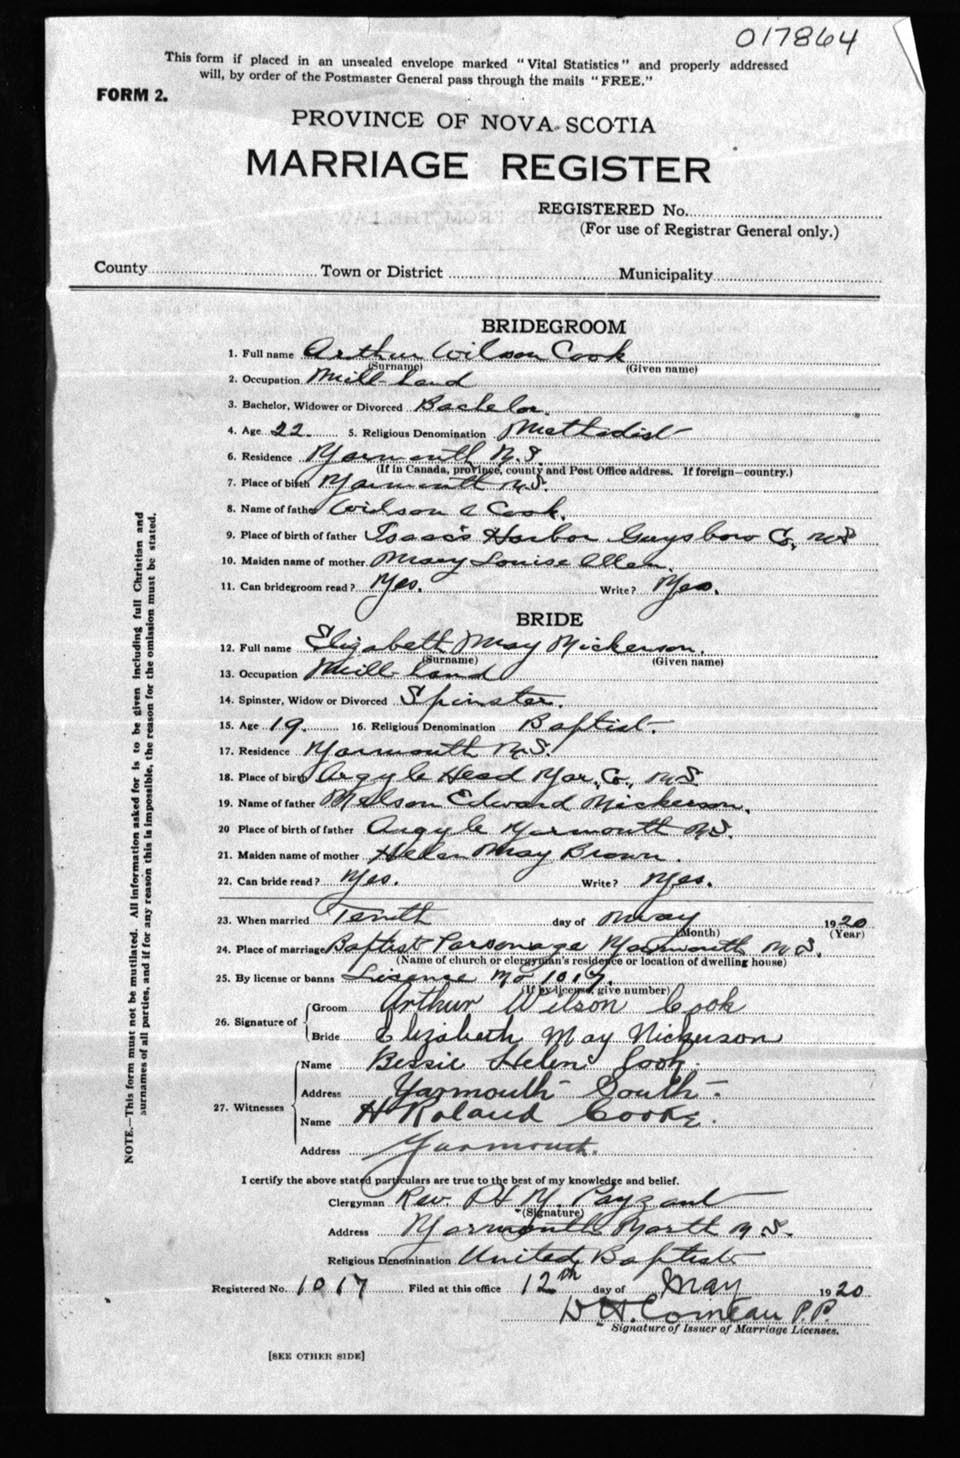 017864
This form if placed in an unsealed envelope marked "Vital Statistics" and properly addressed
will, by order of the Postmaster General pass through the mails "FREE."
FORM 2.
PROVINCE OF NOVA SCOTIA
MARRIAGE REGISTER
REGISTERED No.
(For use of Registrar General only.)
County Town or District Municipality
BRIDEGROOM
1. Full name Arthur Wilson Cook
(Surname) (Given name)
2. Occupation Mill hand
3. Bachelor, Widower or Divorced Bachelor.
4. Age 22 5. Religious Denomination Methodist
6. Residence Yarmouth N.S.
(If in Canada, province, county and Post Office address. If foreign—country.)
7. Place of birth Yarmouth N.S.
8. Name of father Wilson A Cook.
9. Place of birth of father Isaac's Harbor Guysboro Co, N.S
10. Maiden name of mother Mary Louise Allen.
11. Can bridegroom read? Yes. Write? Yes.
BRIDE
12. Full name Elizabeth May Nickerson.
(Surname) (Given name)
13. Occupation Mill hand
14. Spinster, Widow or Divorced Spinster.
15. Age 19. 16. Religious Denomination Baptist.
17. Residence Yarmouth N.S.
18. Place of birth Argyle Head Yar. Co., N.S
19. Name of father Nelson Edward Nickerson.
20 Place of birth of father Argyle Yarmouth N.S.
21. Maiden name of mother Helen May Brown.
22. Can bride read? Yes. Write? Yes.
23. When married Tenth day of May 1920
(Month) (Year)
24. Place of marriage Baptist Parsonage Yarmouth N.S.
(Name of church or clergyman's residence or location of dwelling house)
25. By license or banns Lisence No 1017.
(If by license, give number)
26. Signature of
Groom Arthur Wilson Cook
Bride Elizabeth May Nickerson
27. Witnesses
Name Bessie Helen Cook.
Address Yarmouth South.
Name H Roland Cooke.
Address Yarmouth.
I certify the above stated particulars are true to the best of my knowledge and belief.
Clergyman Rev. P. Payzant
(Signature)
Address Yarmouth North N.S.
Religious Denomination United Baptist
Registered No. 1017 Filed at this office 12th day of May 1920
D H. Comeau P.P.
Signature of Issuer of Marriage Licenses.
[SEE OTHER SIDE]
NOTE.—This form must not be mutilated. All information asked for is to be given including full Christian and
surnames of all parties, and if for any reason this is impossible, the reason for the omission must be stated.